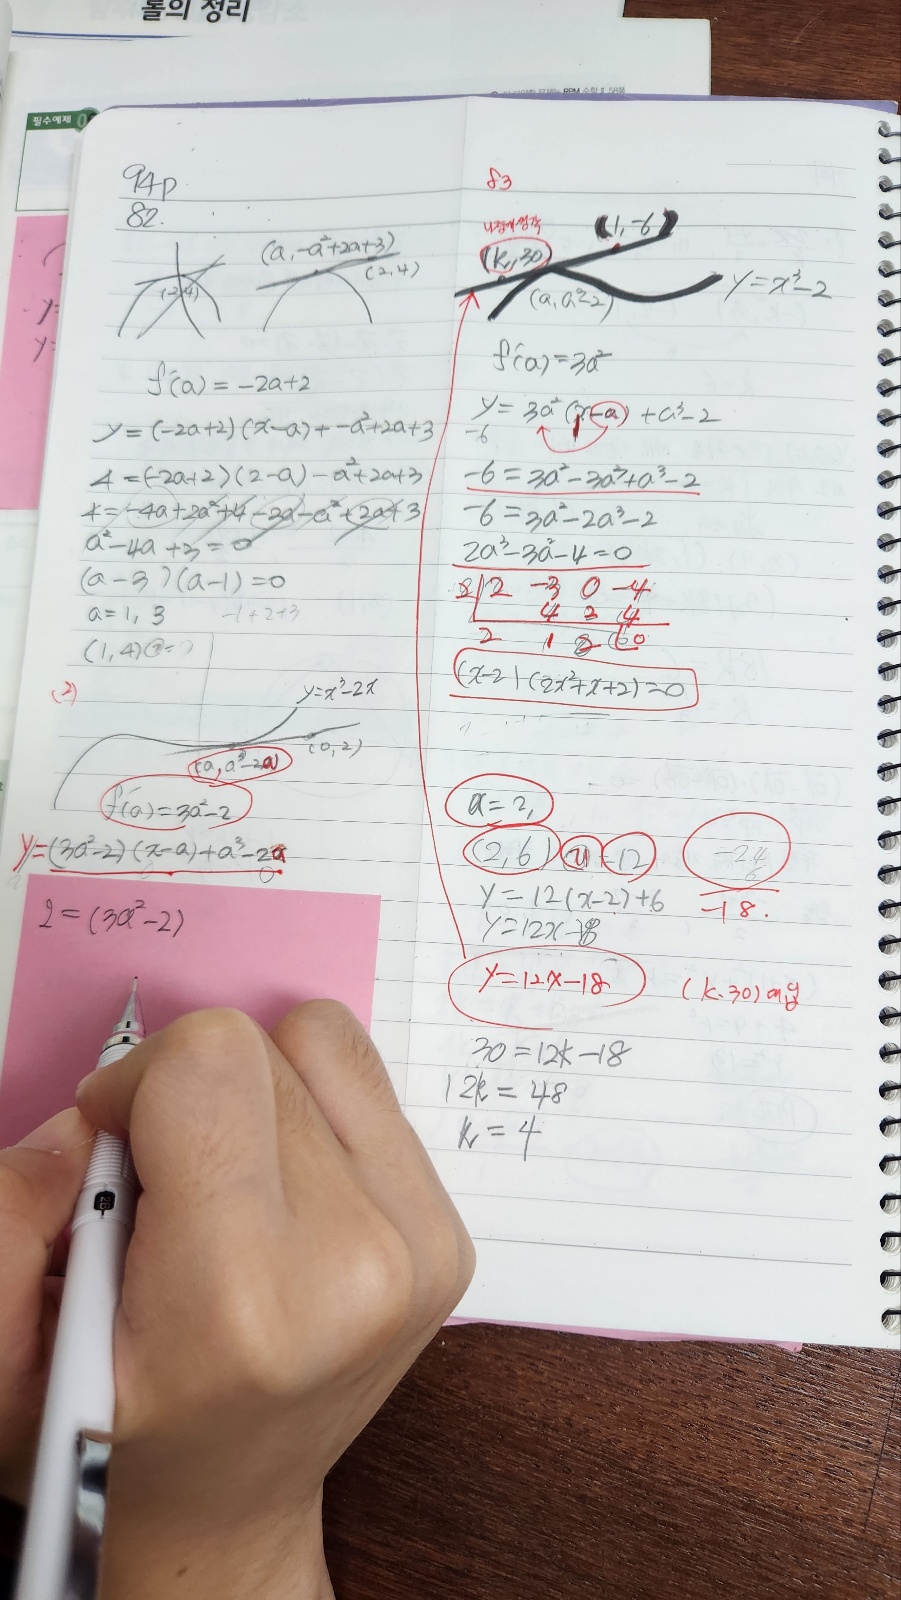 롤의 정리
필수예제
94p
82.
(2,4)
(a, -a²+2a+3)
(2,4)
f'(a) = -2a+2
y = (-2a+2)(x-a)+-a²+2a+3
4 = (-2a+2)(2-a)-a²+2a+3
4 = -4a+2a²+4-2a-a²+2a+3
a²-4a+3=0
(a-3)(a-1)=0
a=1, 3
-1+2+3
(1,4)
(2)
y=x³-2x
(0,2)
(a, a³-2a)
f'(a)=3a²-2
y=(3a²-2)(x-a)+a³-2a
2=(3a²-2)
83
(1,-6)
(k,30)
y=x³-2
(a, a³-2)
f'(a)=3a²
y=3a²(x-a)+a³-2
-6
-6=3a²-3a³+a³-2
-6=3a²-2a³-2
2a³-3a²-4=0
2 2 -3 0 -4
4 2 4
2 1 2 0
(x-2)(2x²+x+2)=0
a=2,
(2,6) =12
-24
6
-18.
y=12(x-2)+6
y=12x-18
y=12x-18
(k.30)대입
30=12k-18
12k=48
k=4